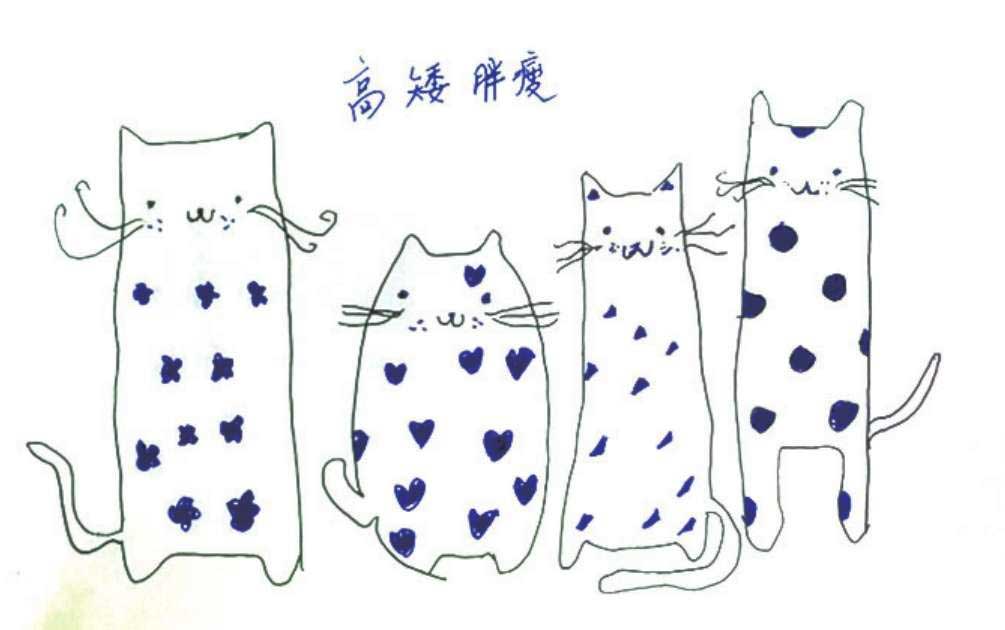 高矮胖瘦